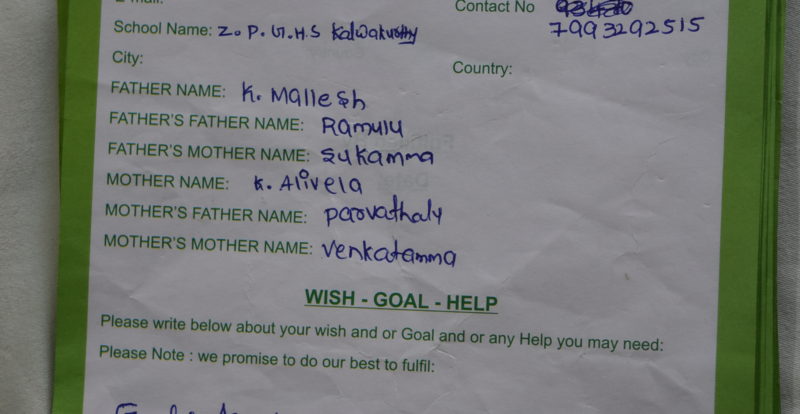 Contact No
School Name: Z.P.G.H.S Kalwakurthy 7993292515
City: Country:
FATHER NAME: K. Mallesh
FATHER'S FATHER NAME: Ramulu
FATHER'S MOTHER NAME: Sukamma
MOTHER NAME: K. Alivela
MOTHER'S FATHER NAME: parvathaly
MOTHER'S MOTHER NAME: venkatamma
WISH - GOAL - HELP
Please write below about your wish and or Goal and or any Help you may need:
Please Note : we promise to do our best to fulfil: